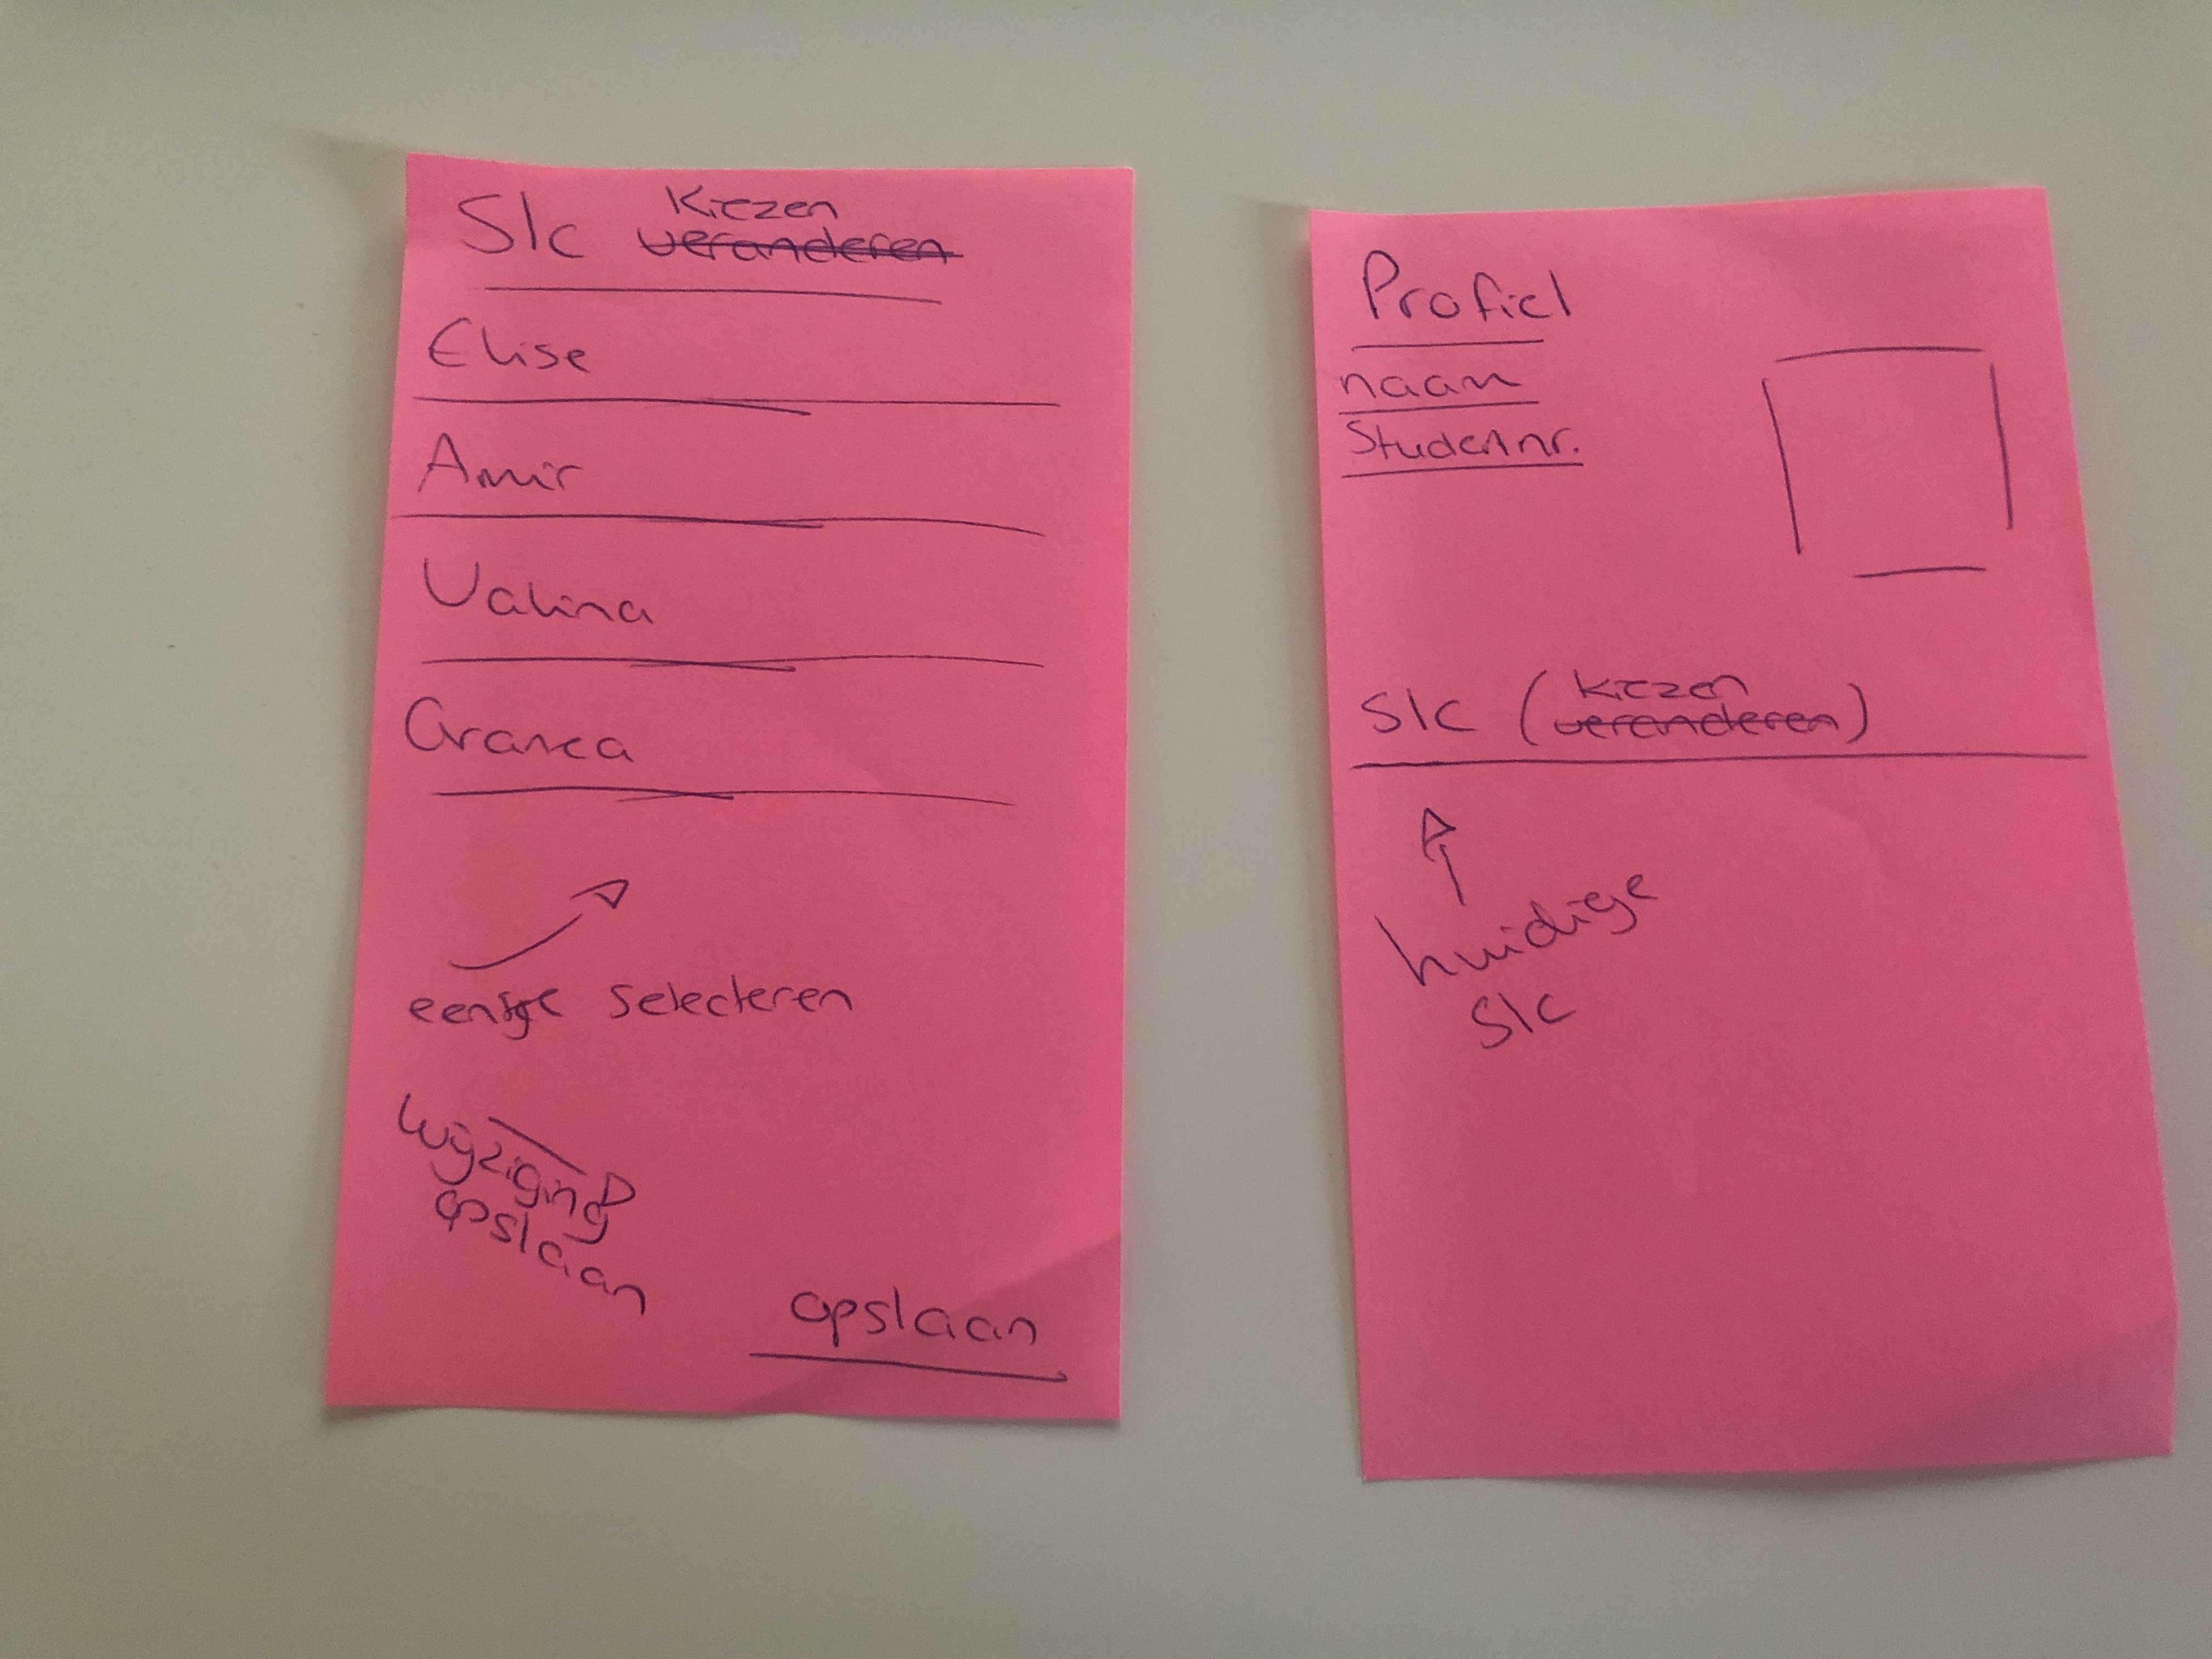 Slc kiezen
veranderen
Elise
Amir
Valina
selecteren
wijziging
opslaan
opslaan
Profiel
naam
Studentnr.
slc (kiezen
veranderen)
huidige
slc